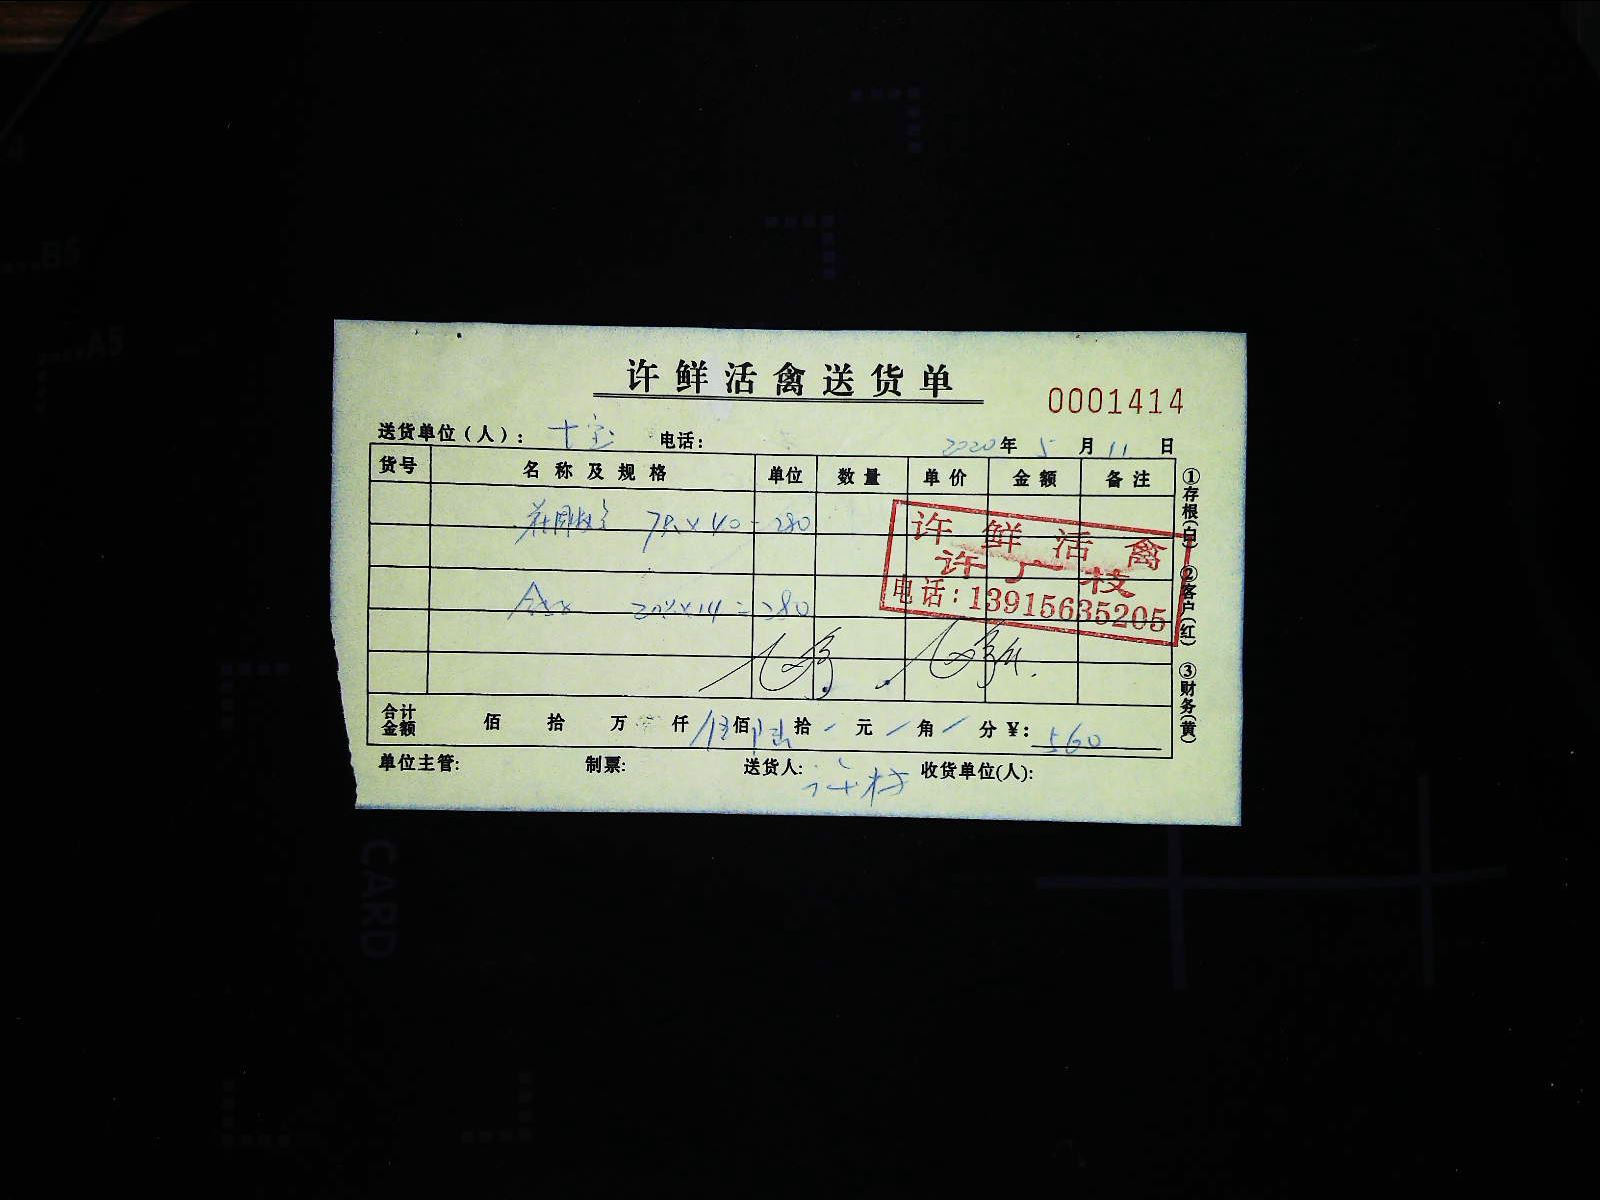 许鲜活禽送货单
0001414
送货单位(人): 电话: 2020年5月11日
货号 名称及规格 单位 数量 单价 金额 备注
7只×40=280
许鲜活禽
许广枝
电话:13915635205
×14=280
合计金额 佰 拾 万 仟 伍佰 陆拾 元 角 分 ¥: 560
单位主管: 制票: 送货人: 收货单位(人):
①存根(白) ②客户(红) ③财务(黄)
B5
A5
CARD